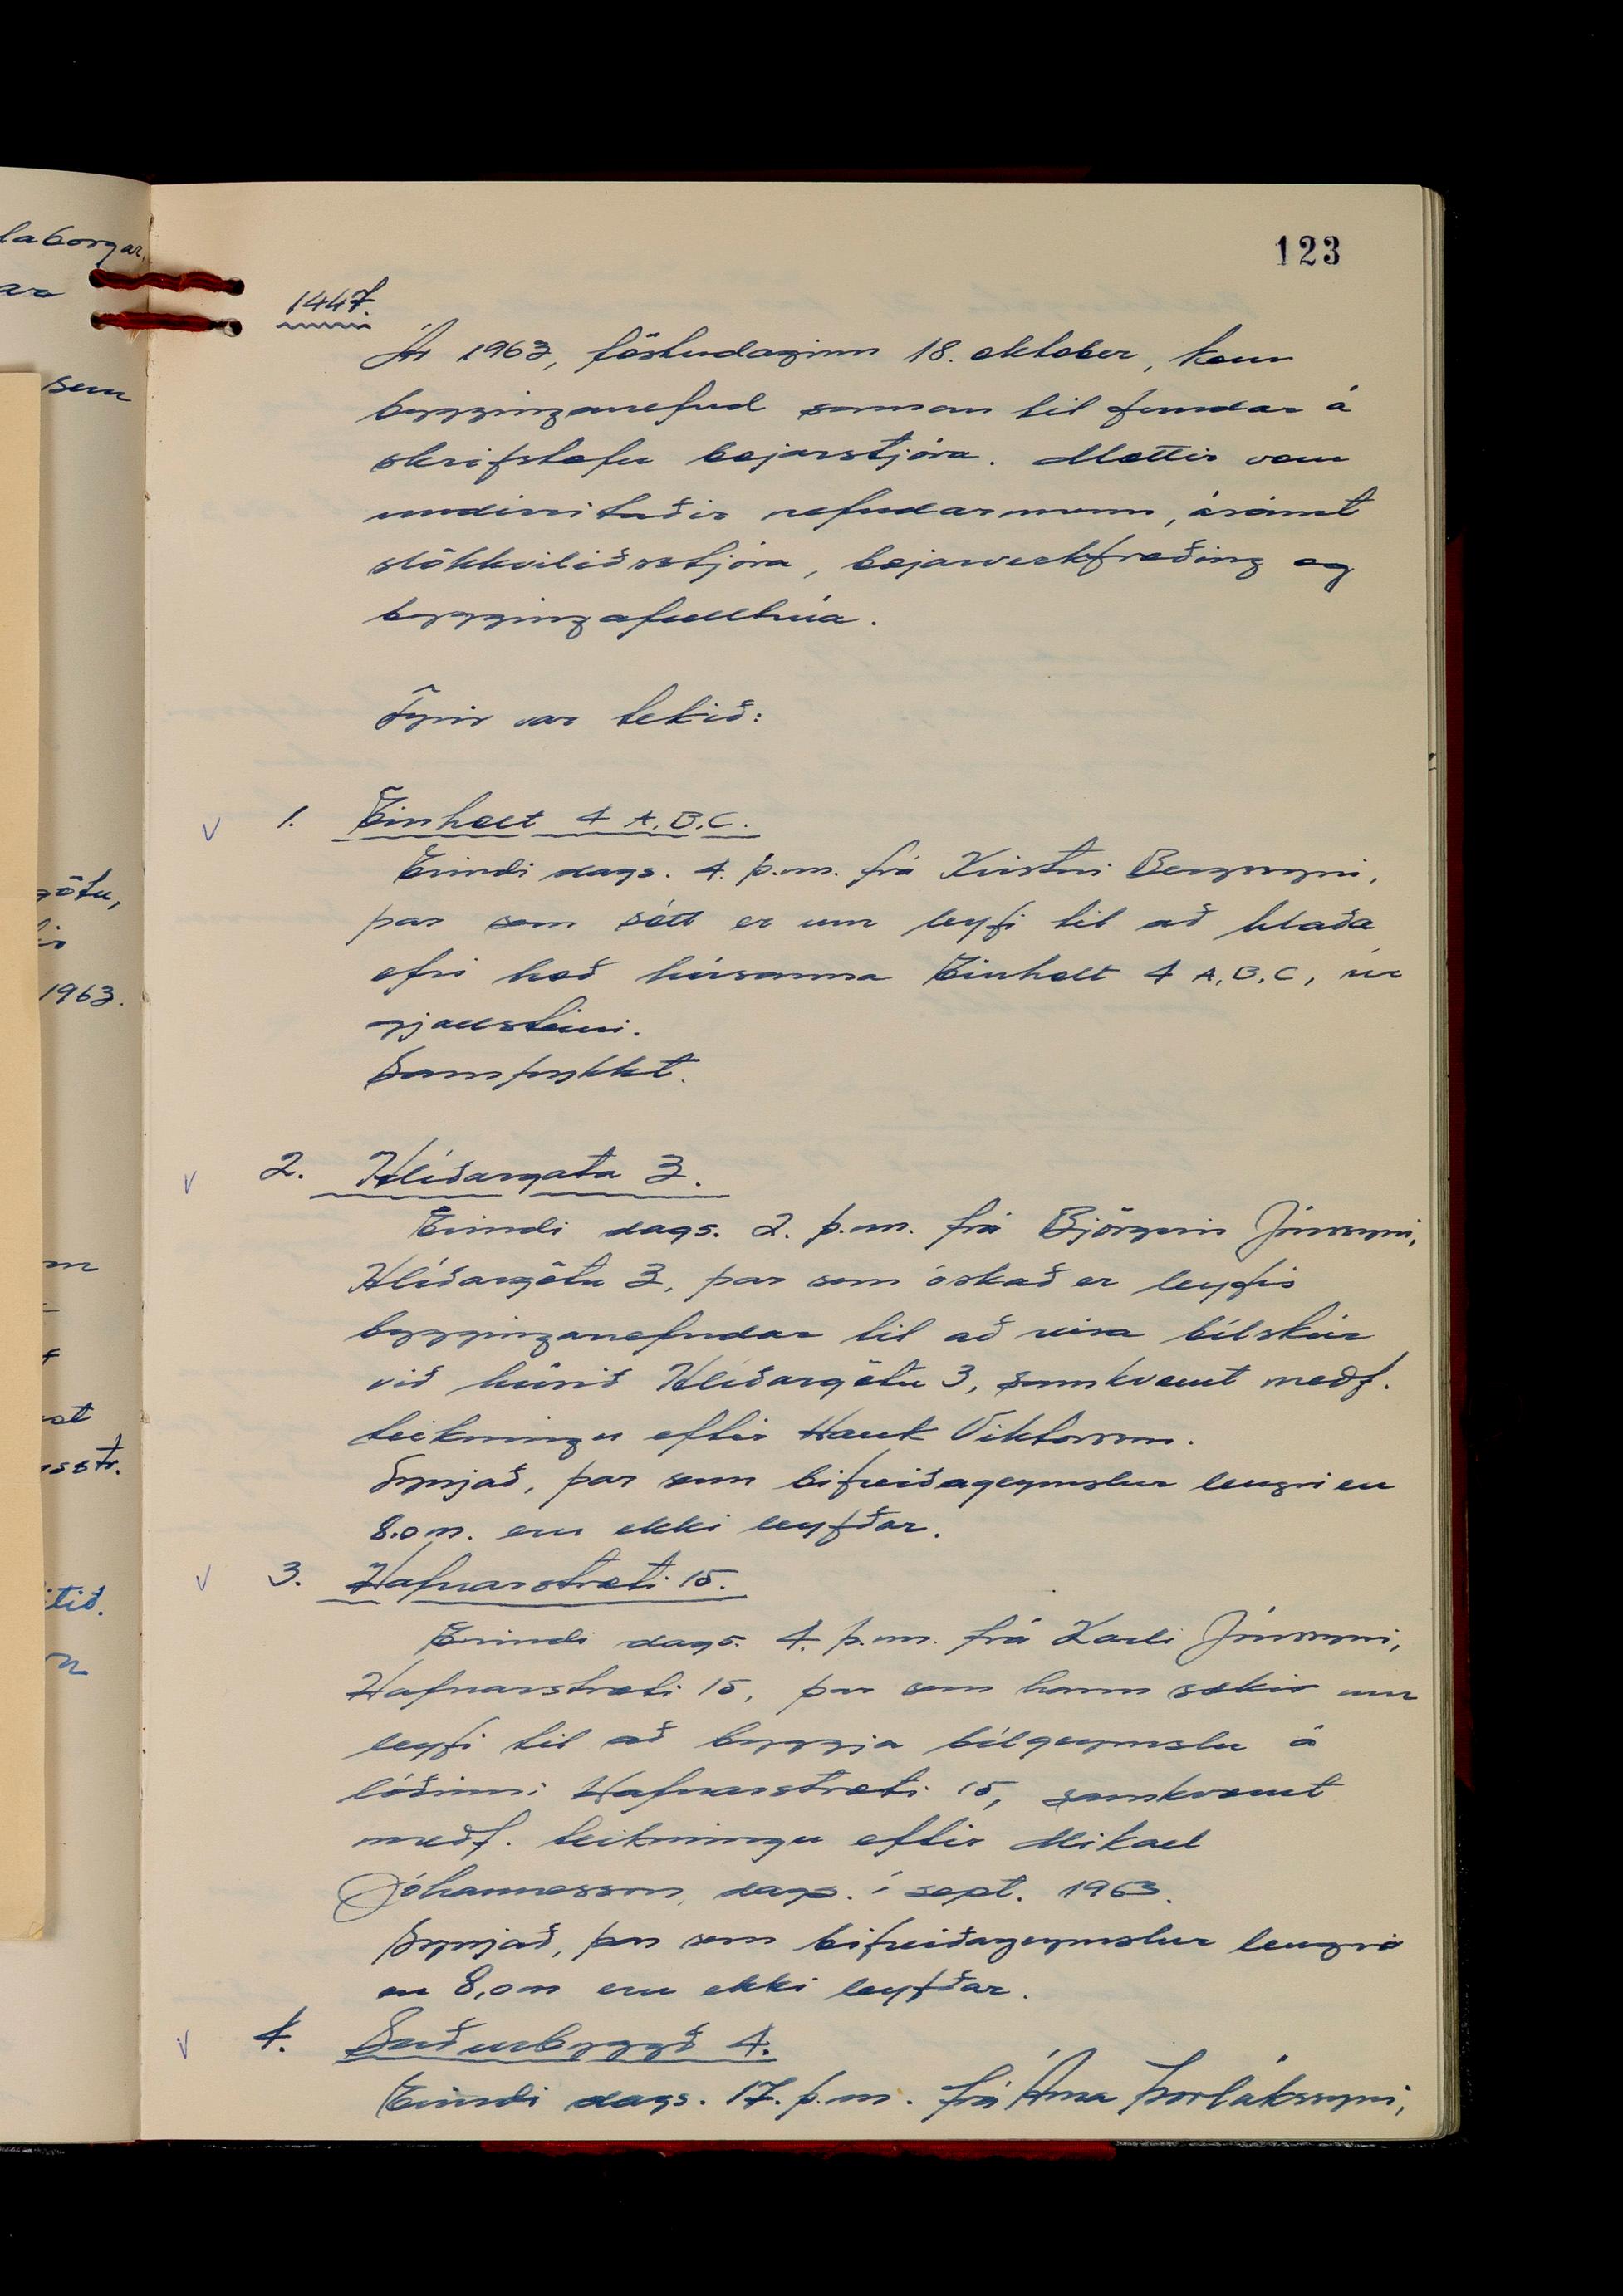 laborgar,
ar
sem
götu,
1963.
sstr.
itið.
123
1447.
Ár 1963, föstudaginn 18. oktober, kom
bygginganefnd saman til fundar á
skrifstofu bæjarstjóra. Mættir voru
undirritaðir nefndarmenn, ásamt
slökkviliðsstjóra, bæjarverkfræðing og
byggingafulltrúa.
Fyrir var tekið:
1. Einholt 4 A.B.C.
Erindi dags. 4. þ.m. frá Kristni Bergssyni,
þar sem sótt er um leyfi til að hlaða
efri hæð húsanna Einholt 4 A.B.C, úr
gjallsteini.
Samþykkt.
2. Hlíðargata 3.
Erindi dags. 2. þ.m. frá Björgvin Jónssyni,
Hlíðargötu 3, þar sem óskað er leyfis
bygginganefndar til að reisa bílskúr
við húsið Hlíðargötu 3, samkvæmt meðf.
teikningu eftir Hauk Viktorsson.
Synjað, þar sem bifreiðageymslur lengri en
8.0 m. eru ekki leyfðar.
3. Hafnarstræti 15.
Erindi dags. 4. þ.m. frá Karli Jónssyni,
Hafnarstræti 15, þar sem hann sækir um
leyfi til að byggja bílgeymslu á
lóðinni Hafnarstræti 15, samkvæmt
meðf. teikningu eftir Mikael
Jóhannesson, dags. í sept. 1963.
Synjað, þar sem bifreiðageymslur lengri
en 8,0 m eru ekki leyfðar.
4. Suðurbyggð 4.
Erindi dags. 17. þ.m. frá Árna Þorlákssyni,